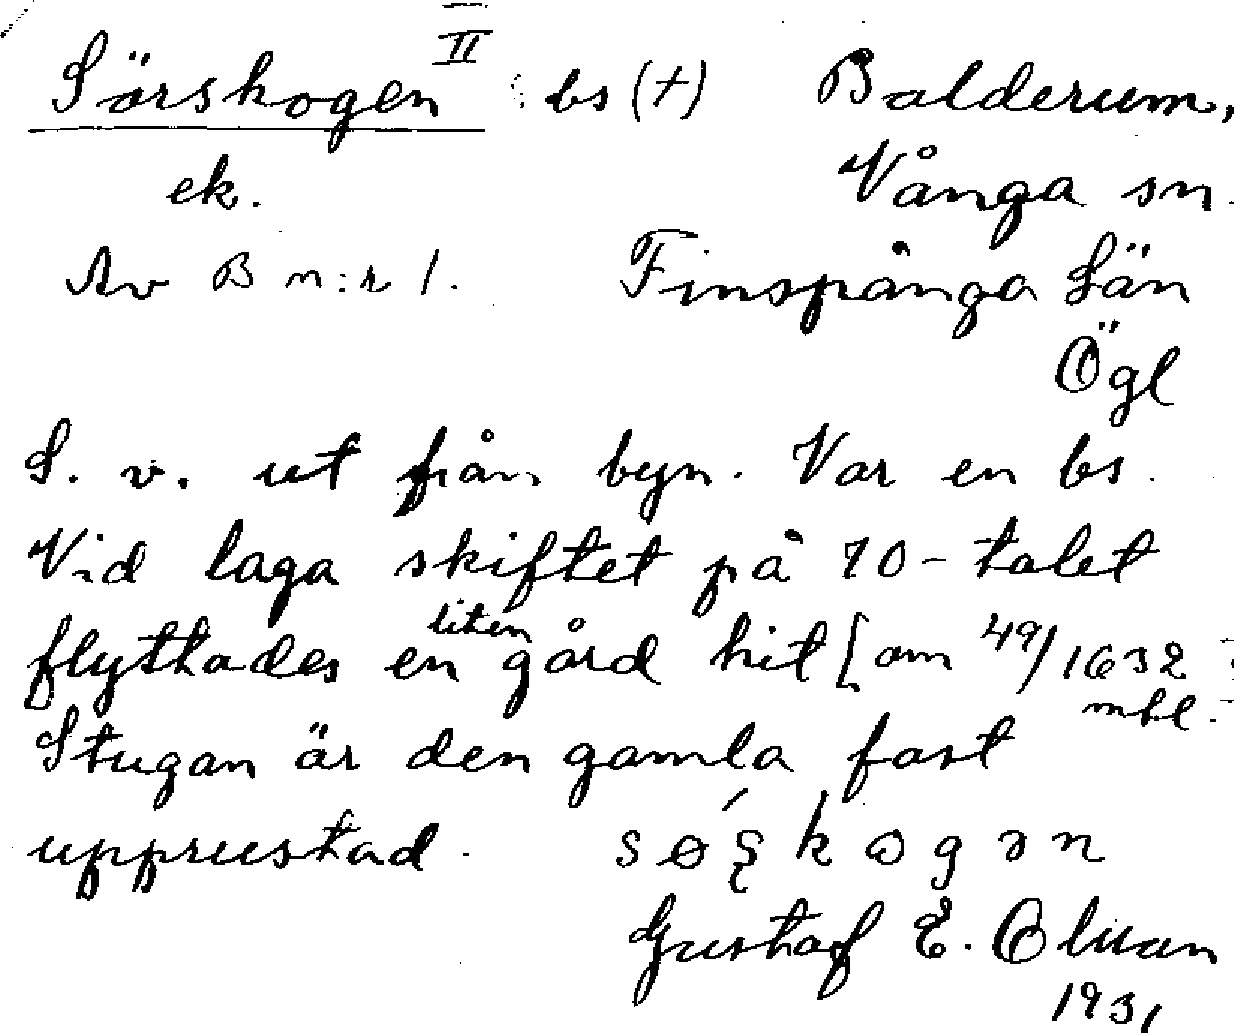 Sörskogen II bs (+) Balderum,
ek. Vånga sn.
Av B n:r 1. Finspånga Län
Ögl
S. v. ut från byn. Var en bs.
Vid laga skiftet på 70-talet
flyttades en liten gård hit [om 49/1632
mtl.
Stugan är den gamla fast
upprustad.
Gustaf E. Olsson
1931